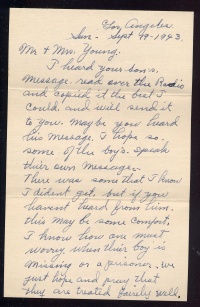 Los Angeles.
Sun - Sept 19-1943
Mr & Mrs. Young.
I heard your son,s
message, read over the Radio
and copied it the best I
could, and will send it
to you. maybe you heard
his message. I hope so.
some of the boy,s. speak
their own message.
There was some that I know
I dident get, but if you
havent heard from him,
this may be some comfort,
I know how one must
worry, when their boy is
missing or a prisoner, we
just hope and pray that
they are treated fairly well.